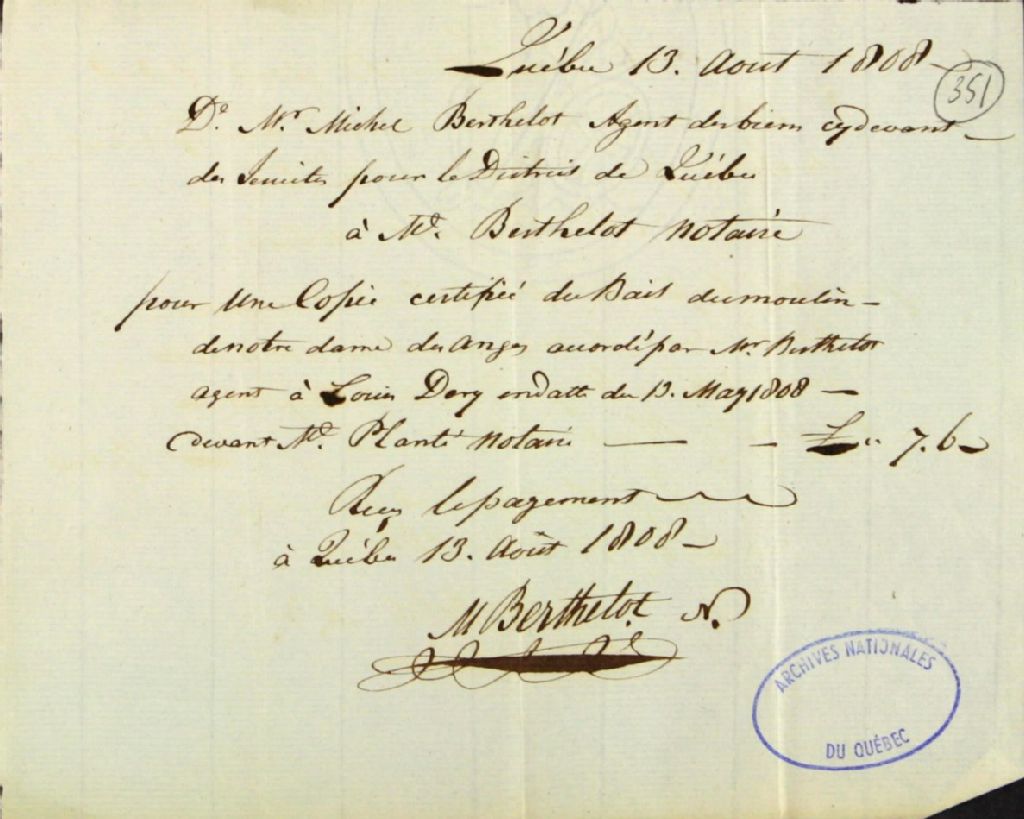 Québec 13. Aout 1808
351
Dr. Mr. Michel Berthelot Agent des biens cydevant
des Jesuites pour le District de Québec
à Me. Berthelot Notaire
pour Une Copie certifiée du Bail du moulin
de notre dame des Anges accordé par Mr. Berthelot
agent à Louis Dery en datte du 13. May 1808
devant Me. Planté Notaire £ " 7.6
Reçu le payement
à Québec 13. Août 1808
M Berthelot N.
ARCHIVES NATIONALES
DU QUÉBEC